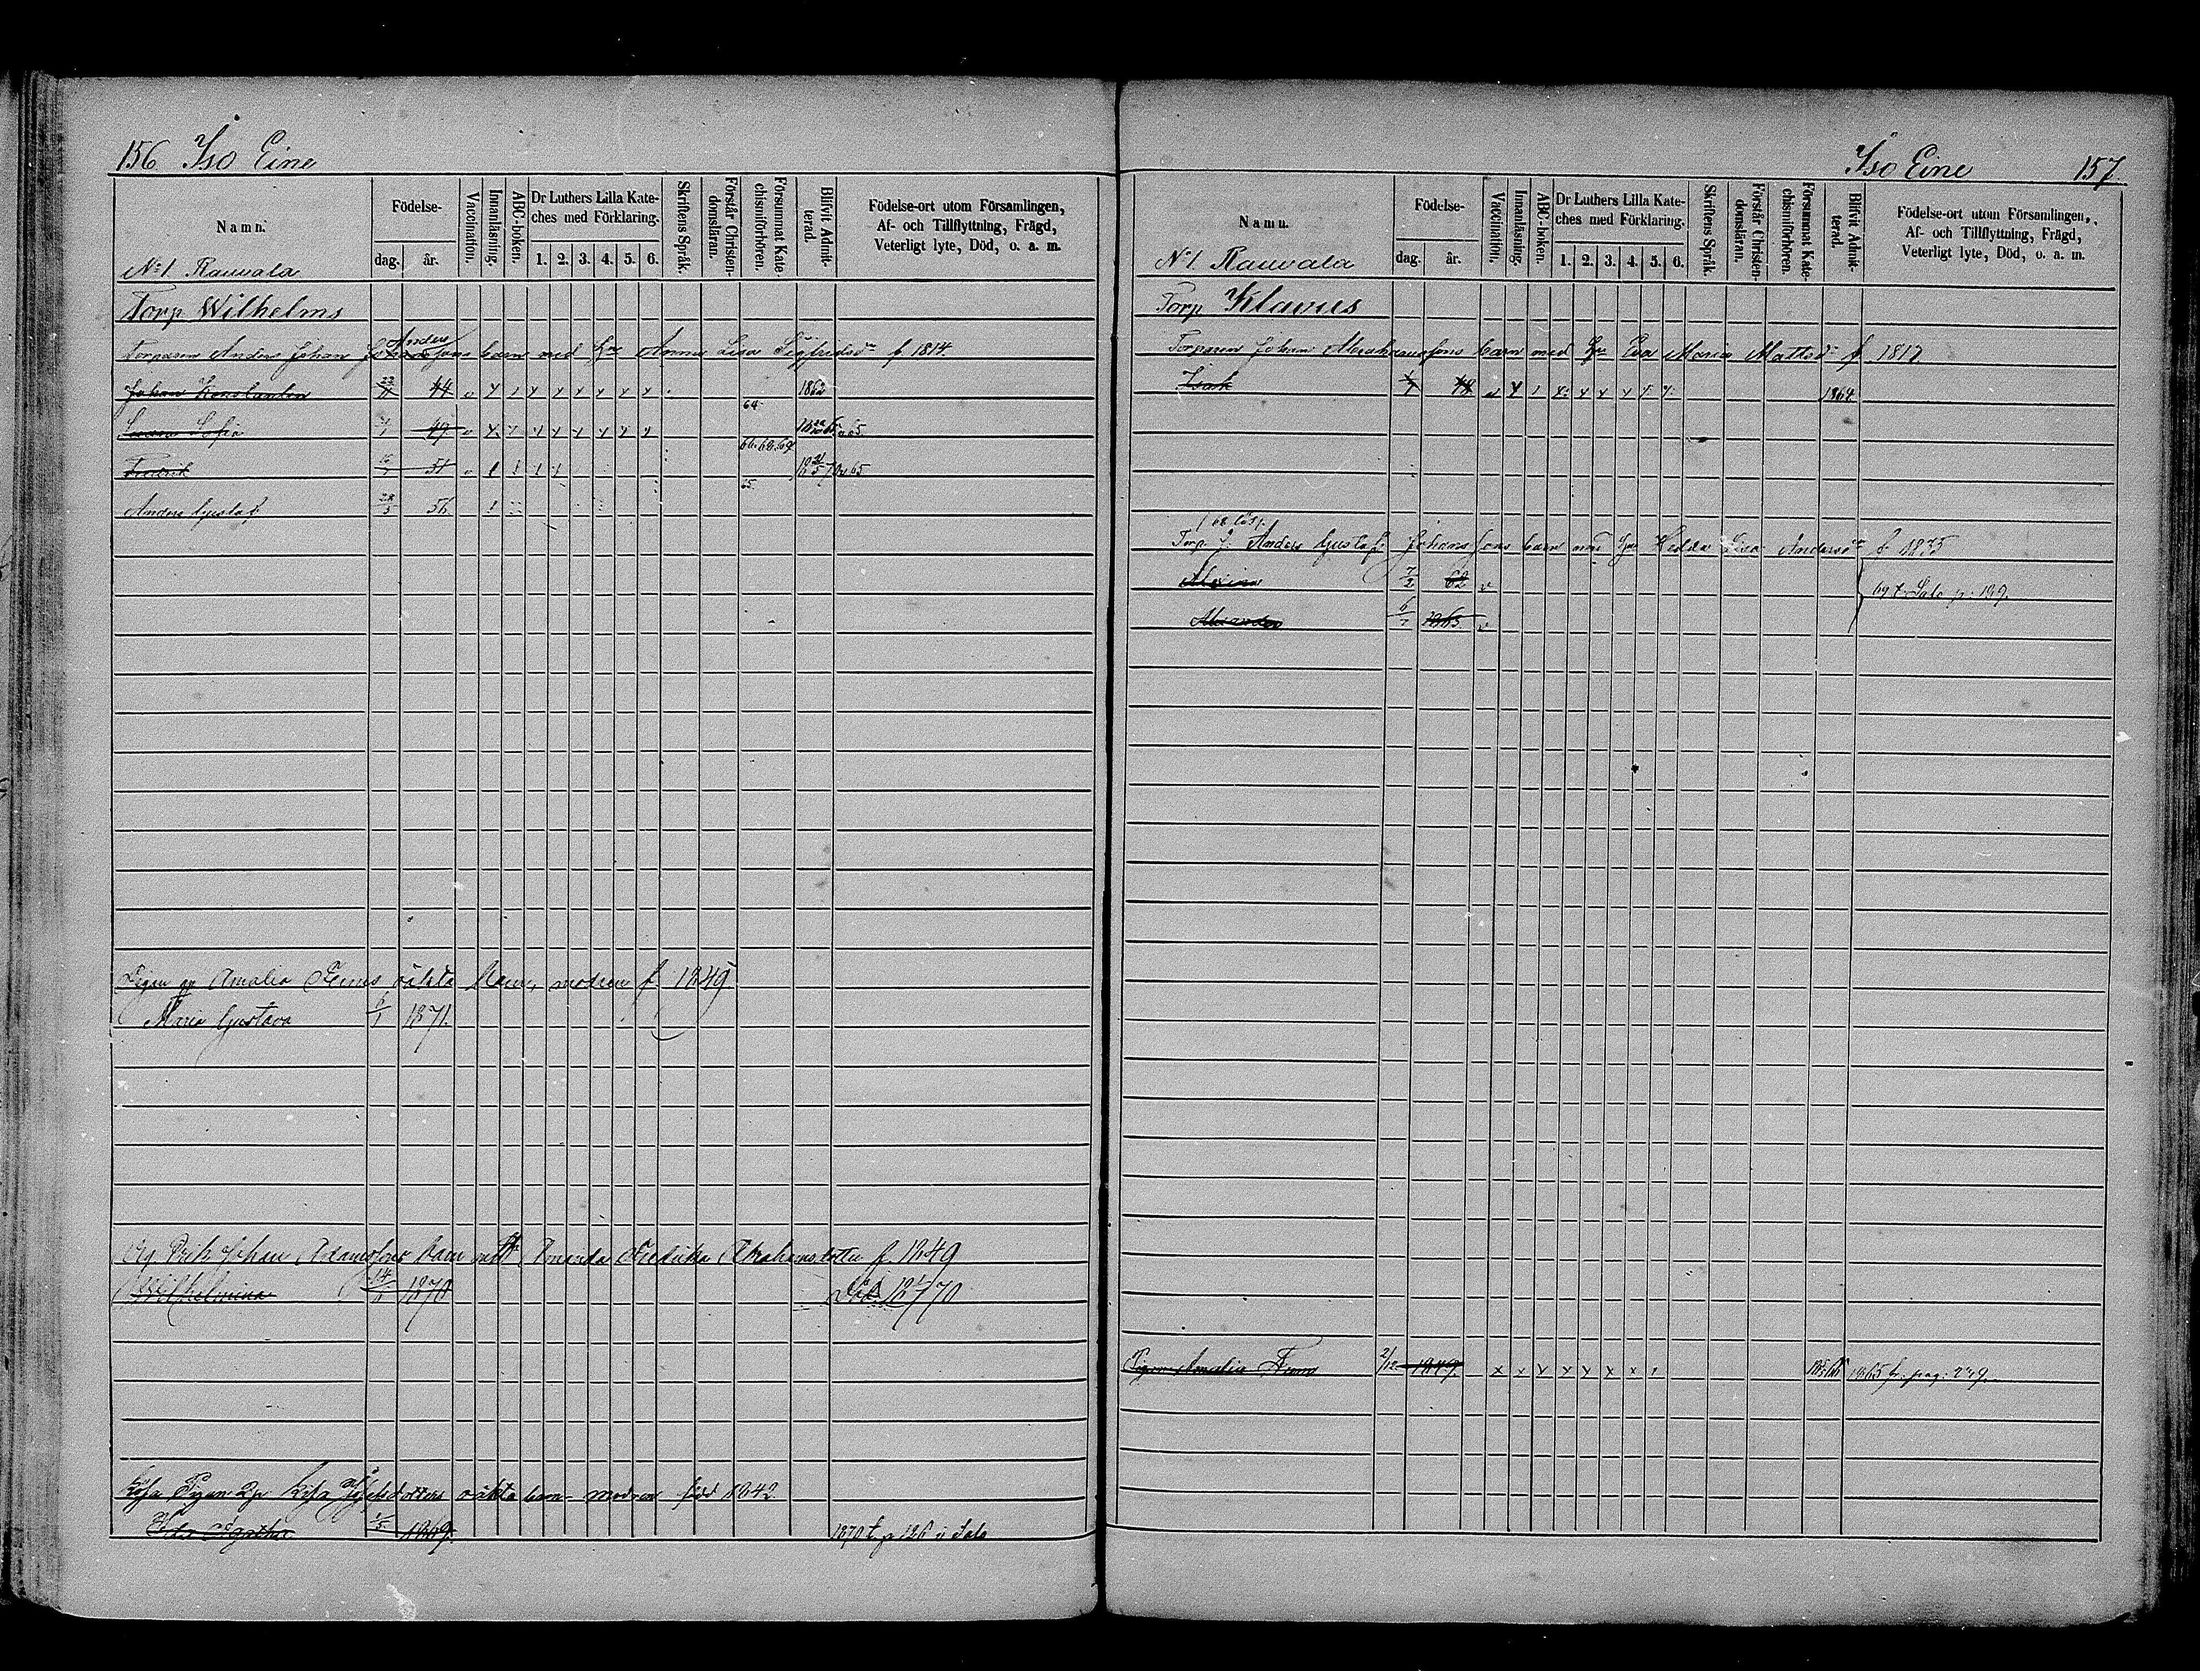 156 Iso Eine
Namn.
Födelse-
dag. år.
Vaccination.
Innanläsning.
ABC-boken.
Dr Luthers Lilla Kate-
ches med Förklaring.
1. 2. 3. 4. 5. 6.
Skriftens Språk.
Förstår Christen-
domsläran.
Försummat Kate-
chismiförhören.
Blifvit Admit-
terad.
Födelse-ort utom Församlingen,
Af- och Tillflyttning, Frägd,
Veterligt lyte, Död, o. a. m.
No 1. Rauvala
Torp Wilhelms
Anders
Torparen Anders Johan Johanssons barn med Hu Anna Lisa Sigfredsdr f. 1814.
Johan Konstantin 44 1862
64.
Sofia 49 65.
66. 68. 69.
Fredrik 51 65
65.
Anders Gustaf 28/3 56.
Pigan Amalia oäkta barn, modren f. 1849
Maria Gustava 6/1 1871.
Johan Adamssons barn med Amanda Fredrika Abrahamsdotter f. 1849
Wilhelmina 14 1870 Död 1870
Pigan Josefsdotters oäkta barn modren född 1842
Agatha 1869. 1870 t. p 126 i Salo
Iso Eine 157
Namn.
Födelse-
dag. år.
Vaccination.
Innanläsning.
ABC-boken.
Dr Luthers Lilla Kate-
ches med Förklaring.
1. 2. 3. 4. 5. 6.
Skriftens Språk.
Förstår Christen-
domsläran.
Försummat Kate-
chismiförhören.
Blifvit Admit-
terad.
Födelse-ort utom Församlingen,
Af- och Tillflyttning, Frägd,
Veterligt lyte, Död, o. a. m.
No 1. Rauvala
Torp Klavus
Torparen Johan Abrahamssons barn med Hu Eva Maria Mattsdr f. 1817
Isak 48 1864.
Torp f. Anders Gustaf Johanssons barn med Hu Hedda Lisa Andersdr f. 1835
7/2 62 v
69 t. Salo p. 139.
Alexander 6/7 1865 v
Pigan Amalia 2/12 1849. 1865 fr. pag: 249.